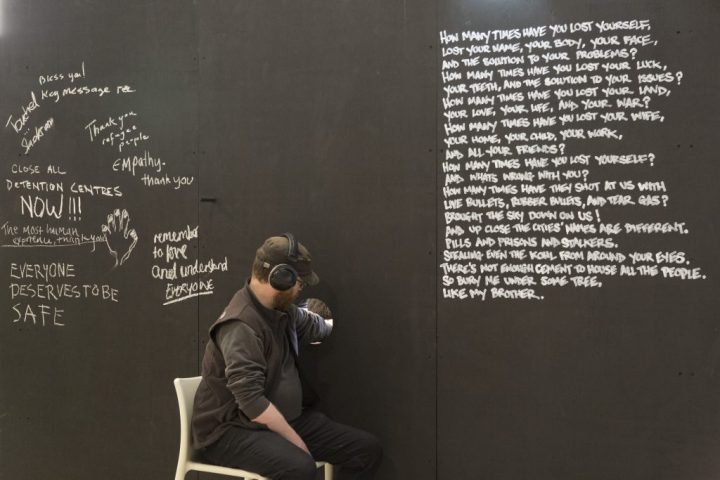 Bless you!
Key message re
Touched
Thank you
refugee
people
Empathy-
thank you
CLOSE ALL
DETENTION CENTRES
NOW!!!
The most human
experience, thank you
EVERYONE
DESERVES TO BE
SAFE
remember
to love
and understand
EVERYONE
HOW MANY TIMES HAVE YOU LOST YOURSELF,
LOST YOUR NAME, YOUR BODY, YOUR FACE,
AND THE SOLUTION TO YOUR PROBLEMS?
HOW MANY TIMES HAVE YOU LOST YOUR LUCK,
YOUR TEETH, AND THE SOLUTION TO YOUR ISSUES?
HOW MANY TIMES HAVE YOU LOST YOUR LAND,
YOUR LOVE, YOUR LIFE, AND YOUR WAR?
HOW MANY TIMES HAVE YOU LOST YOUR WIFE,
YOUR HOME, YOUR CHILD, YOUR WORK,
AND ALL YOUR FRIENDS?
HOW MANY TIMES HAVE YOU LOST YOURSELF?
AND WHATS WRONG WITH YOU?
HOW MANY TIMES HAVE THEY SHOT AT US WITH
LIVE BULLETS, RUBBER BULLETS, AND TEAR GAS?
BROUGHT THE SKY DOWN ON US!
AND UP CLOSE THE CITIES' NAMES ARE DIFFERENT.
PILLS AND PRISONS AND STALKERS.
STEALING EVEN THE KOHL FROM AROUND YOUR EYES.
THERE'S NOT ENOUGH CEMENT TO HOUSE ALL THE PEOPLE.
SO BURY ME UNDER SOME TREE,
LIKE MY BROTHER..